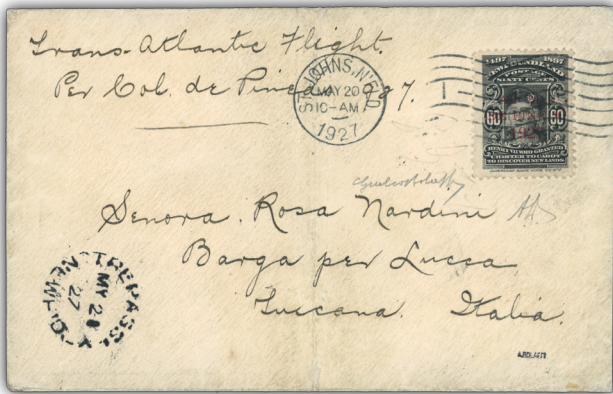 Trans-Atlantic Flight.
Per Col. de Pinedo 27.
ST. JOHN'S, N'F'D
MAY 20
10-AM
1927
1497 1897
NEWFOUNDLAND
POSTAGE
SIXTY CENTS
60 60
HENRY VII WHO GRANTED
CHARTER TO CABOT
TO DISCOVER NEW LANDS
Senora. Rosa Nardini
Barga per Lucca
Tuscana. Italia.
TREPASSEY
MY 2
27